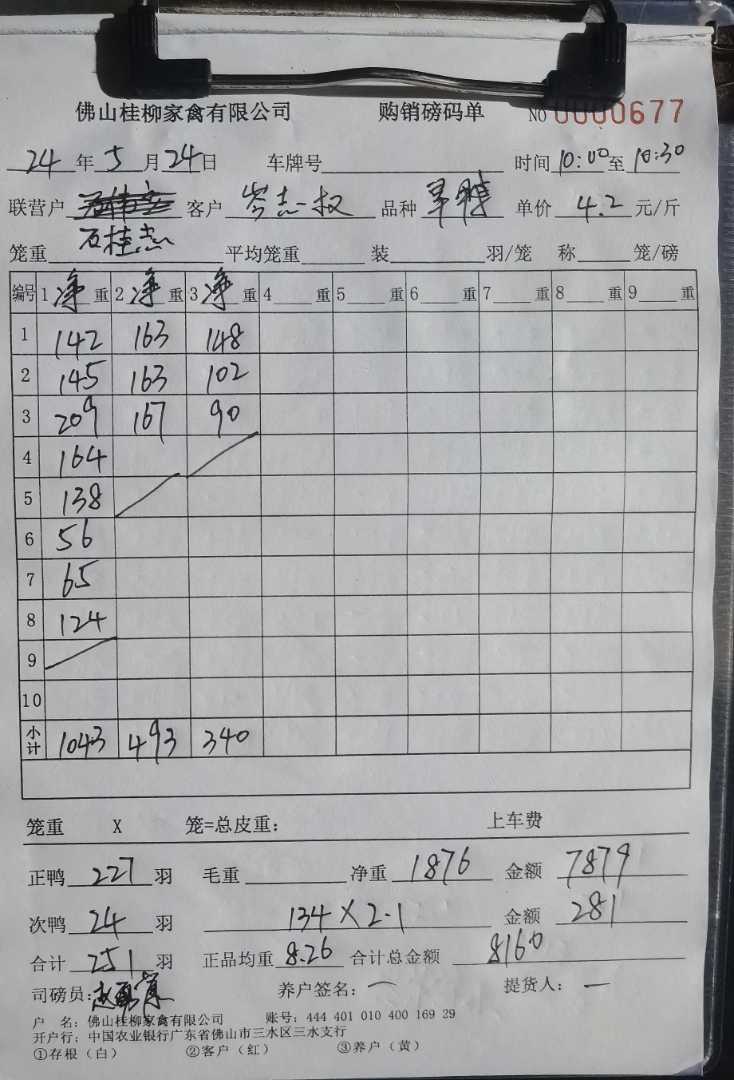 佛山桂柳家禽有限公司 购销磅码单 NO 0000677
24 年 5 月 24 日 车牌号 时间 10:00 至 10:30
联营户 客户 岑志权 品种 单价 4.2 元/斤
石桂志
笼重 平均笼重 装 羽/笼 称 笼/磅
编号 1 净 重 2 净 重 3 净 重 4 重 5 重 6 重 7 重 8 重 9 重
1 142 163 148
2 145 163 102
3 209 167 90
4 164
5 138
6 56
7 65
8 124
9
10
小计 1043 493 340
笼重 X 笼=总皮重: 上车费
正鸭 227 羽 毛重 净重 1876 金额 7879
次鸭 24 羽 134×2.1 金额 281
合计 251 羽 正品均重 8.26 合计总金额 8160
司磅员: 养户签名: 一 提货人: 一
户 名: 佛山桂柳家禽有限公司 账号: 444 401 010 400 169 29
开户行: 中国农业银行广东省佛山市三水区三水支行
①存根(白) ②客户(红) ③养户(黄)